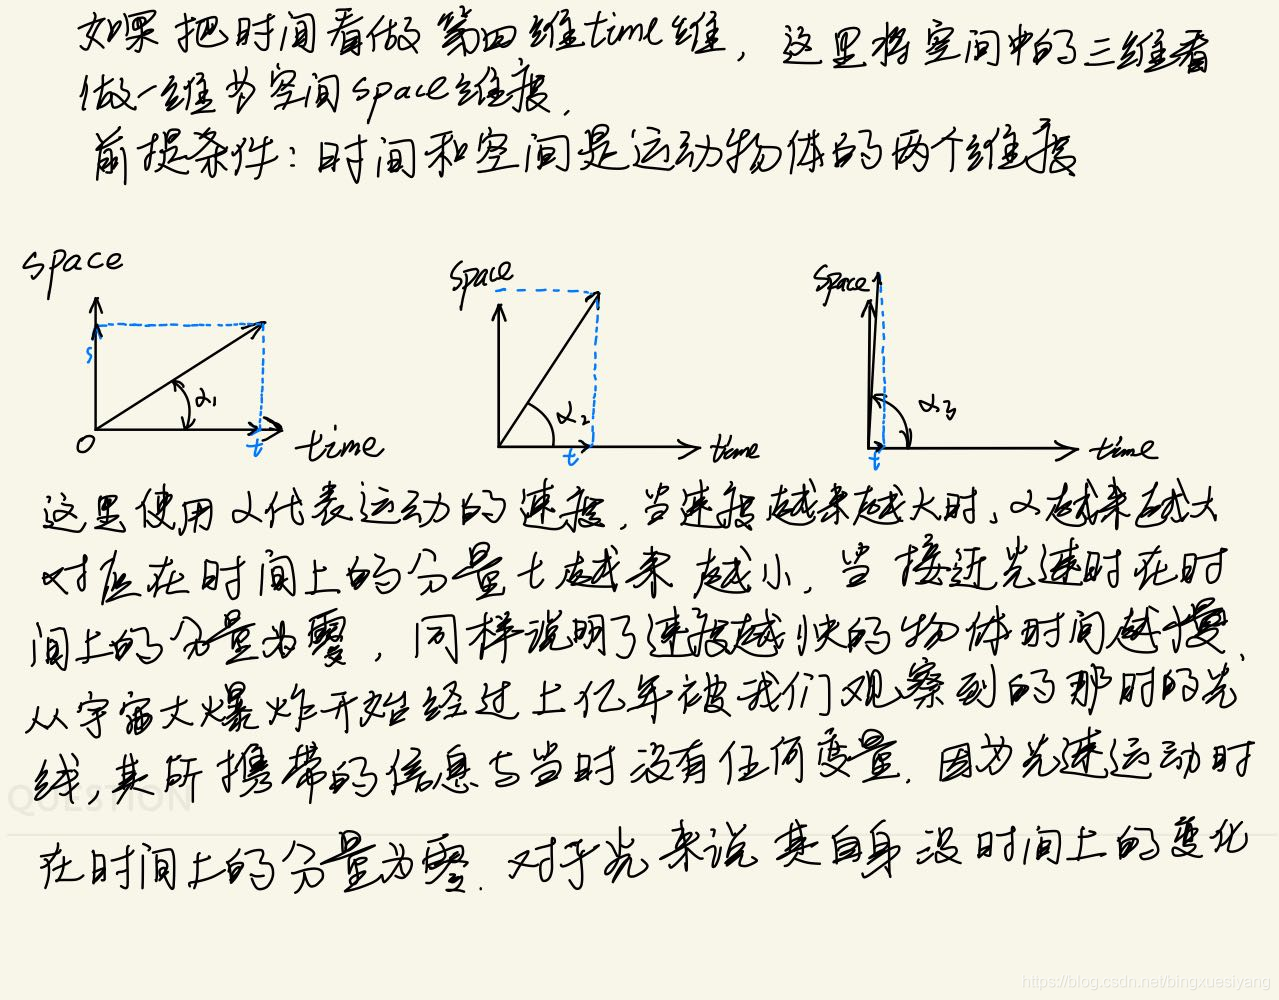 如果把时间看做第四维time维，这里将空间中的三维看
做一维为空间space维度.
前提条件：时间和空间是运动物体的两个维度
space
space
space
s
α₁
α₂
α₃
0
t
time
t
time
t
time
这里使用α代表运动的速度，当速度越来越大时、α越来越大
对应在时间上的分量t越来越小，当接近光速时在时
间上的分量为零，同样说明了速度越快的物体时间越慢.
从宇宙大爆炸开始经过上亿年被我们观察到的那时的光
线，其所携带的信息与当时没有任何变量. 因为光速运动时
QUESTION
在时间上的分量为零. 对于光来说其自身没时间上的变化
https://blog.csdn.net/bingxuesiyang